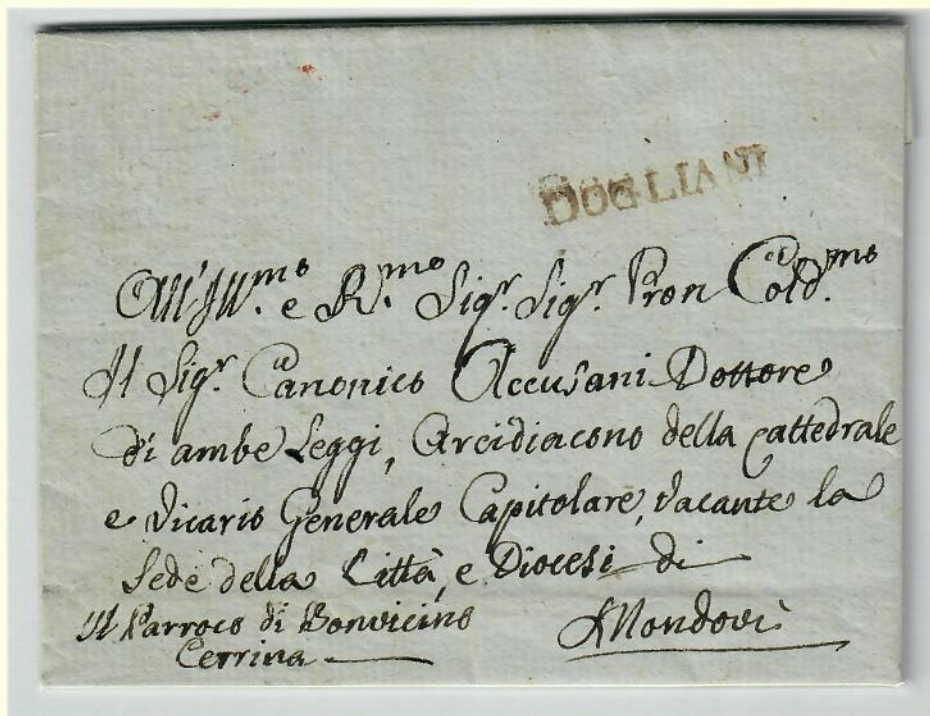 DOGLIANI
All'Ill.mo e R.mo Sigr. Sigr. Pron Cold.mo
Il Sigr. Canonico Accusani Dottore
di ambe Leggi, Arcidiacono della Cattedrale
e Vicario Generale Capitolare, vacante la
Sede della Città, e Diocesi di
Il Parroco di Bonvicino
Cerrina
Mondovì